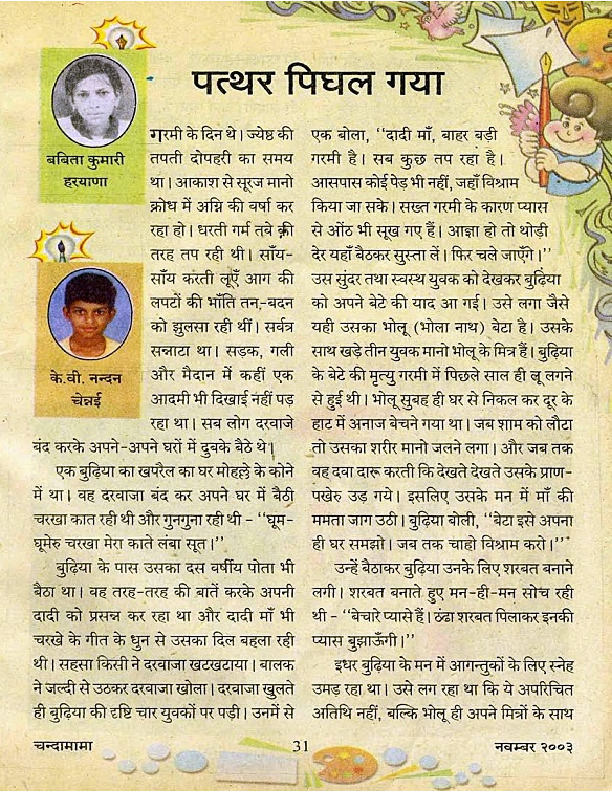 पत्थर पिघल गया
बबिता कुमारी
हरयाणा
के.वी. नन्दन
चेन्नई
गरमी के दिन थे। ज्येष्ठ की
तपती दोपहरी का समय
था। आकाश से सूरज मानो
क्रोध में अग्नि की वर्षा कर
रहा हो। धरती गर्म तवे की
तरह तप रही थी। साँय-
साँय करती लूएँ आग की
लपटों की भाँति तन,-बदन
को झुलसा रही थीं। सर्वत्र
सन्नाटा था। सड़क, गली
और मैदान में कहीं एक
आदमी भी दिखाई नहीं पड़
रहा था। सब लोग दरवाजे
बंद करके अपने-अपने घरों में दुबके बैठे थे।
एक बुढ़िया का खपरैल का घर मोहल्ले के कोने
में था। वह दरवाजा बंद कर अपने घर में बैठी
चरखा कात रही थी और गुनगुना रही थी - "घूम-
घूमेरु चरखा मेरा काते लंबा सूत।"
बुढ़िया के पास उसका दस वर्षीय पोता भी
बैठा था। वह तरह-तरह की बातें करके अपनी
दादी को प्रसन्न कर रहा था और दादी माँ भी
चरखे के गीत के धुन से उसका दिल बहला रही
थी। सहसा किसी ने दरवाजा खटखटाया। बालक
ने जल्दी से उठकर दरवाजा खोला। दरवाजा खुलते
ही बुढ़िया की दृष्टि चार युवकों पर पड़ी। उनमें से
एक बोला, "दादी माँ, बाहर बड़ी
गरमी है। सब कुछ तप रहा है।
आसपास कोई पेड़ भी नहीं, जहाँ विश्राम
किया जा सके। सख्त गरमी के कारण प्यास
से ओंठ भी सूख गए हैं। आज्ञा हो तो थोड़ी
देर यहाँ बैठकर सुस्ता लें। फिर चले जाएँगे।"
उस सुंदर तथा स्वस्थ युवक को देखकर बुढ़िया
को अपने बेटे की याद आ गई। उसे लगा जैसे
यही उसका भोलू (भोला नाथ) बेटा है। उसके
साथ खड़े तीन युवक मानो भोलू के मित्र हैं। बुढ़िया
के बेटे की मृत्यु गरमी में पिछले साल ही लू लगने
से हुई थी। भोलू सुबह ही घर से निकल कर दूर के
हाट में अनाज बेचने गया था। जब शाम को लौटा
तो उसका शरीर मानो जलने लगा। और जब तक
वह दवा दारू करती कि देखते देखते उसके प्राण-
पखेरु उड़ गये। इसलिए उसके मन में माँ की
ममता जाग उठी। बुढ़िया बोली, "बेटा इसे अपना
ही घर समझो। जब तक चाहो विश्राम करो।"
उन्हें बैठाकर बुढ़िया उनके लिए शरबत बनाने
लगी। शरबत बनाते हुए मन-ही-मन सोच रही
थी - "बेचारे प्यासे हैं। ठंढा शरबत पिलाकर इनकी
प्यास बुझाऊँगी।"
इधर बुढ़िया के मन में आगन्तुकों के लिए स्नेह
उमड़ रहा था। उसे लग रहा था कि ये अपरिचित
अतिथि नहीं, बल्कि भोलू ही अपने मित्रों के साथ
चन्दामामा
31
नवम्बर २००३